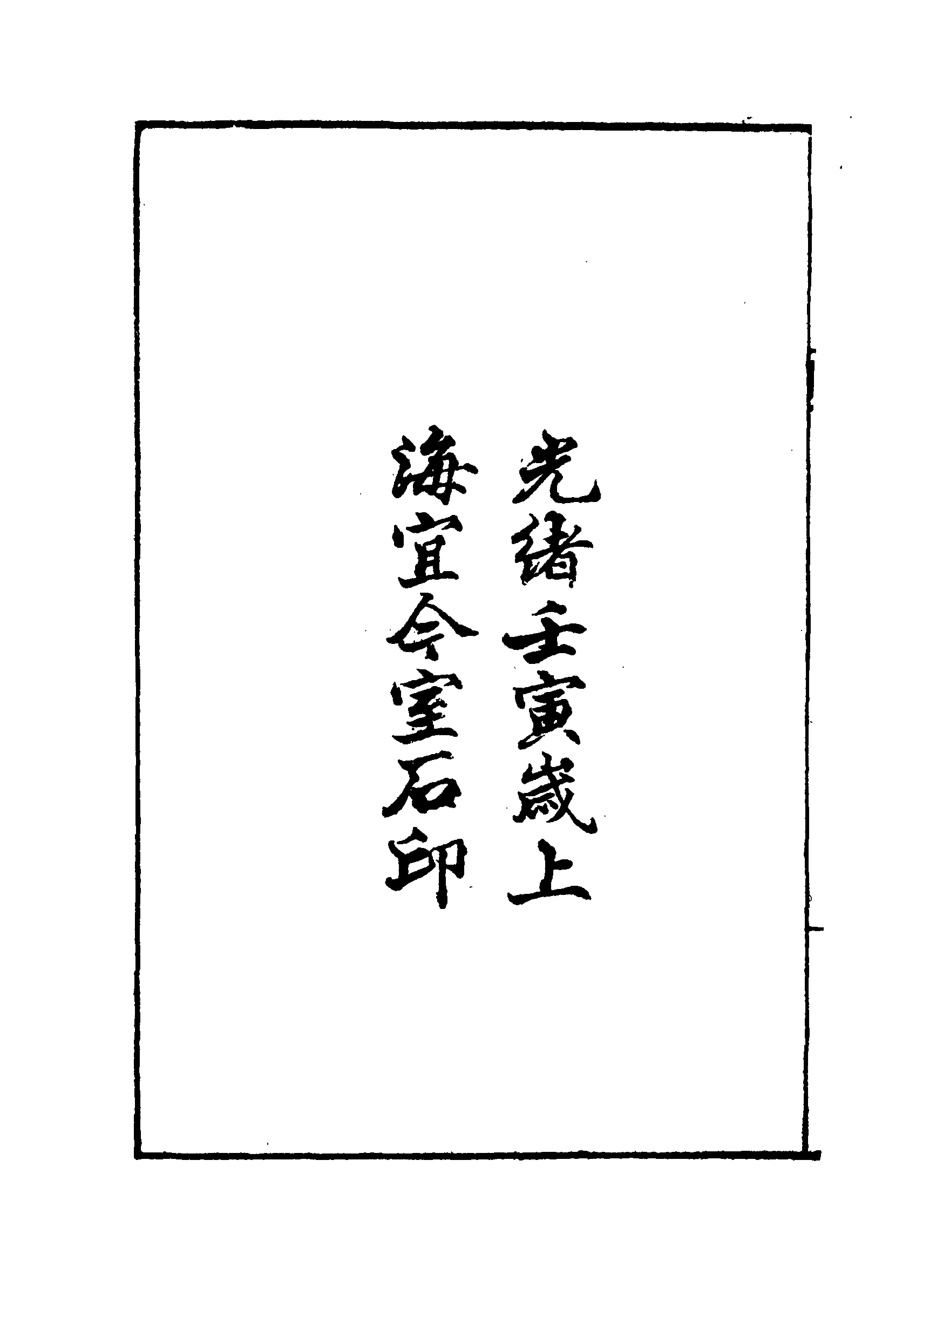 光緒壬寅歲上
海宜今室石印